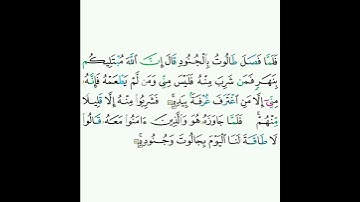 فَلَمَّا فَصَلَ طَالُوتُ بِالْجُنُودِ قَالَ إِنَّ اللَّهَ مُبْتَلِيكُم
بِنَهَرٍ فَمَن شَرِبَ مِنْهُ فَلَيْسَ مِنِّي وَمَن لَّمْ يَطْعَمْهُ فَإِنَّهُ
مِنِّي إِلَّا مَنِ اغْتَرَفَ غُرْفَةً بِيَدِهِ ۚ فَشَرِبُوا مِنْهُ إِلَّا قَلِيلًا
مِّنْهُمْ ۚ فَلَمَّا جَاوَزَهُ هُوَ وَالَّذِينَ ءَامَنُوا مَعَهُ قَالُوا
لَا طَاقَةَ لَنَا الْيَوْمَ بِجَالُوتَ وَجُنُودِهِ ۚ